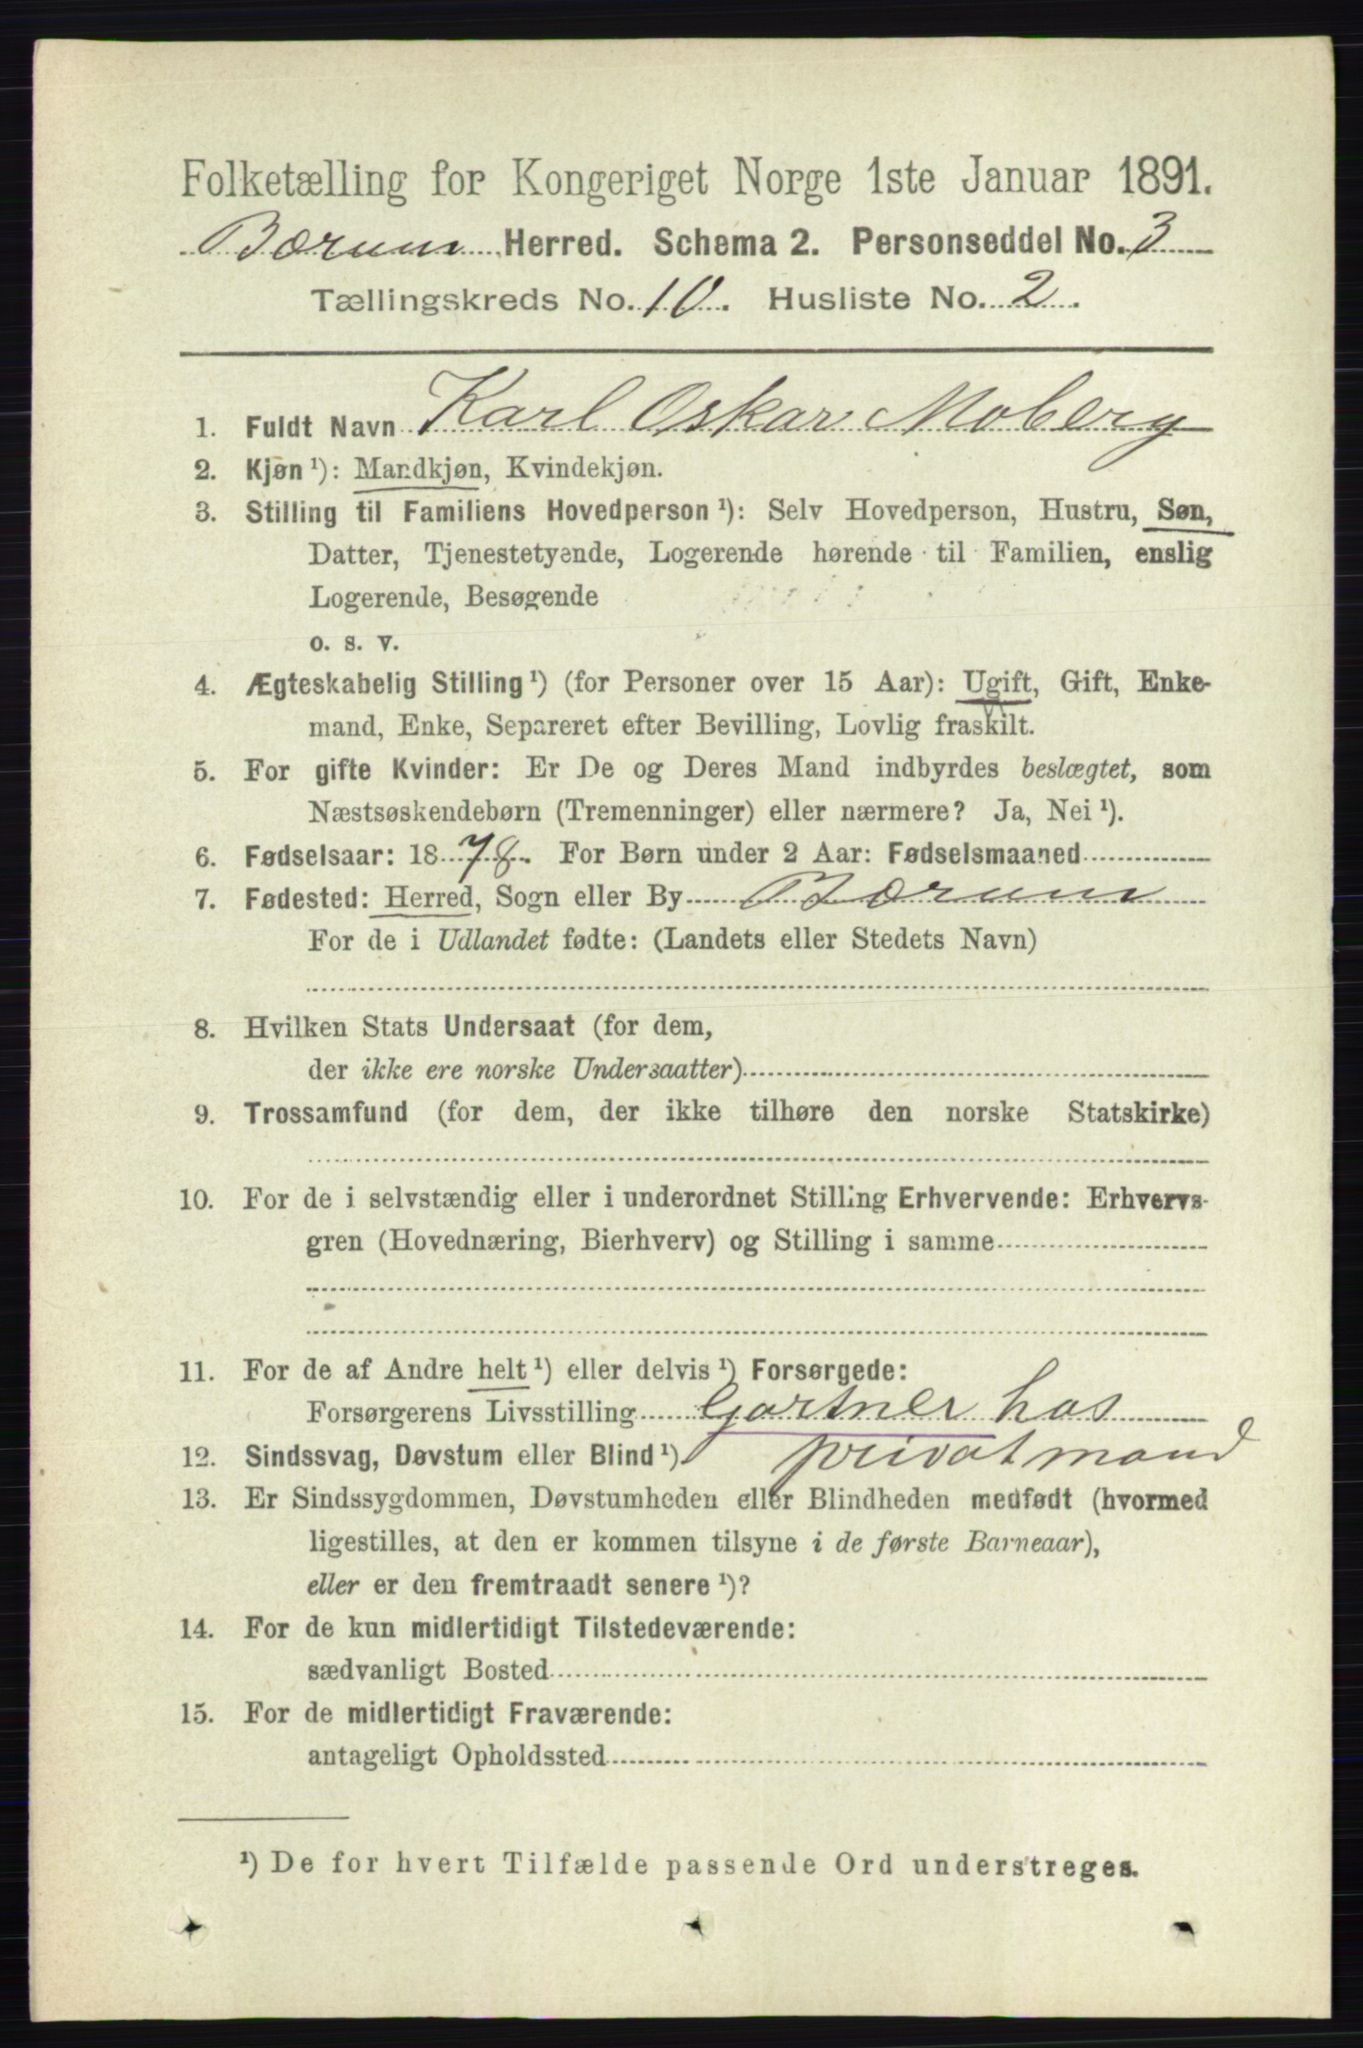 Folketælling for Kongeriget Norge 1ste Januar 1891.
Bærum Herred. Schema 2. Personseddel No. 3
Tællingskreds No. 10. Husliste No. 2.
1. Fuldt Navn Karl Oskar Moberg
2. Kjøn¹): Mandkjøn, Kvindekjøn.
3. Stilling til Familiens Hovedperson¹): Selv Hovedperson, Hustru, Søn,
Datter, Tjenestetyende, Logerende hørende til Familien, enslig
Logerende, Besøgende
o. s. v.
4. Ægteskabelig Stilling¹) (for Personer over 15 Aar): Ugift, Gift, Enke-
mand, Enke, Separeret efter Bevilling, Lovlig fraskilt.
5. For gifte Kvinder: Er De og Deres Mand indbyrdes beslægtet, som
Næstsøskendebørn (Tremenninger) eller nærmere? Ja, Nei¹).
6. Fødselsaar: 1878. For Børn under 2 Aar: Fødselsmaaned
7. Fødested: Herred, Sogn eller By Bærum
For de i Udlandet fødte: (Landets eller Stedets Navn)
8. Hvilken Stats Undersaat (for dem,
der ikke ere norske Undersaatter)
9. Trossamfund (for dem, der ikke tilhøre den norske Statskirke)
10. For de i selvstændig eller i underordnet Stilling Erhvervende: Erhvervs-
gren (Hovednæring, Bierhverv) og Stilling i samme
11. For de af Andre helt¹) eller delvis¹) Forsørgede:
Forsørgerens Livsstilling Gartner hos
12. Sindssvag, Døvstum eller Blind¹) privatmand
13. Er Sindssygdommen, Døvstumheden eller Blindheden medfødt (hvormed
ligestilles, at den er kommen tilsyne i de første Barneaar),
eller er den fremtraadt senere¹)?
14. For de kun midlertidigt Tilstedeværende:
sædvanligt Bosted
15. For de midlertidigt Fraværende:
antageligt Opholdssted
¹) De for hvert Tilfælde passende Ord understreges.